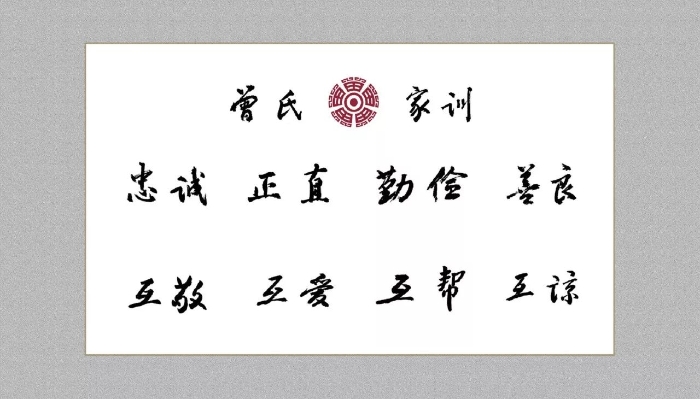 曾氏 家训
忠诚 正直 勤俭 善良
互敬 互爱 互帮 互谅